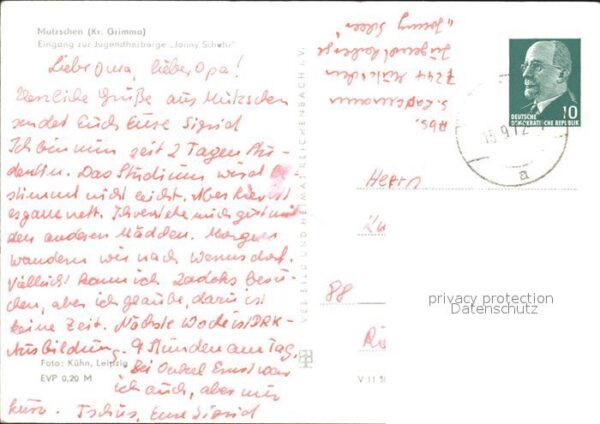 Mutzschen (Kr. Grimma)
Eingang zur Jugendherberge „Jonny Schehr"
Liebe Oma, lieber Opa!
Herzliche Grüße aus Mutzschen
sendet Euch Eure Sigrid
Ich bin nun seit 2 Tagen Stu-
dentin. Das Studium wird be-
stimmt nicht leicht. Aber hier ist
es ganz nett. Ich verstehe mich gut mit
den anderen Mädchen. Morgen
wandern wir nach Wermsdorf.
Vielleicht kann ich Zadeks besu-
chen, aber ich glaube, dazu ist
keine Zeit. Nächste Woche ist DRK-
Ausbildung. 9 Stunden am Tag.
Bei Onkel Ernst war
ich auch, aber nur
kurz. Tschüs, Eure Sigrid
Foto: Kühn, Leipzig
EVP 0,20 M
VEB BILD UND HEIMAT REICHENBACH i. V.
V 11 50
Abs.
S.
7244 Mutzschen
Jugendherberge
„Jonny Scheer"
10
DEUTSCHE
DEMOKRATISCHE REPUBLIK
15.9.72
a
Herrn
88
privacy protection
Datenschutz